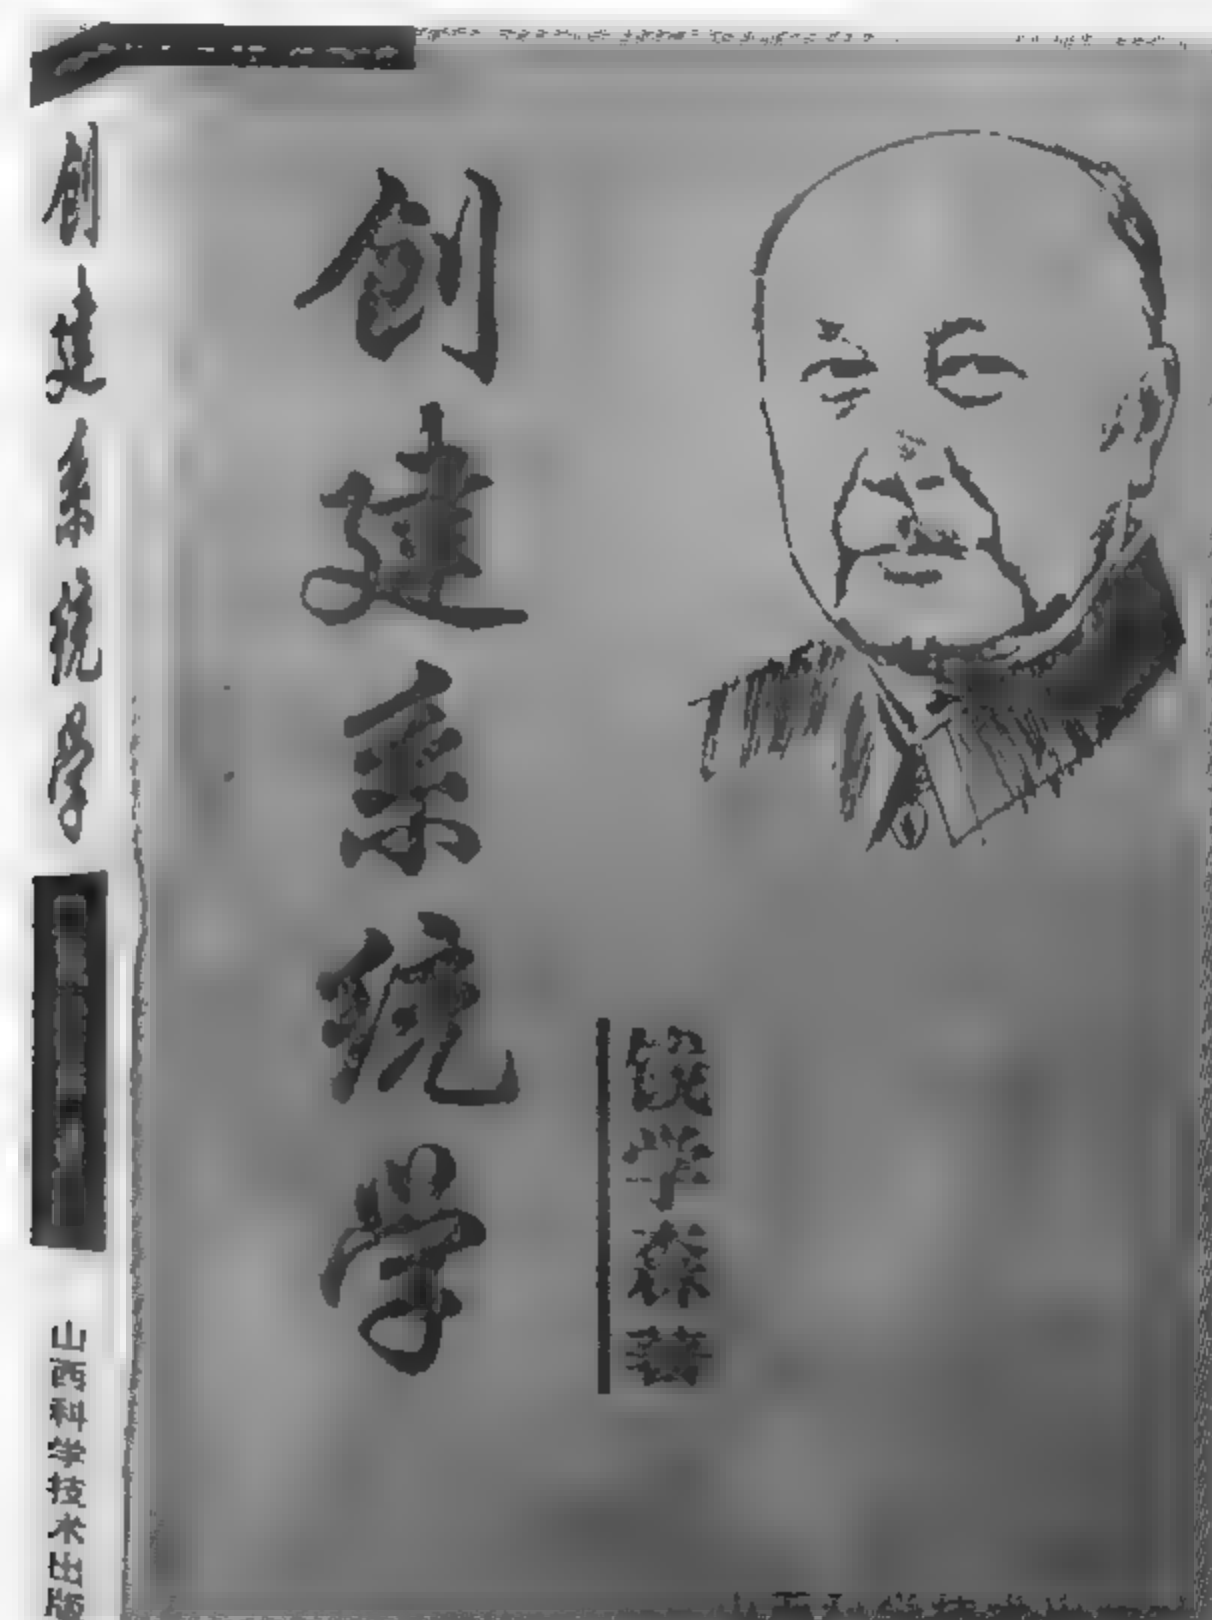 创建系统学
钱学森著
创建系统学
山西科学技术出版